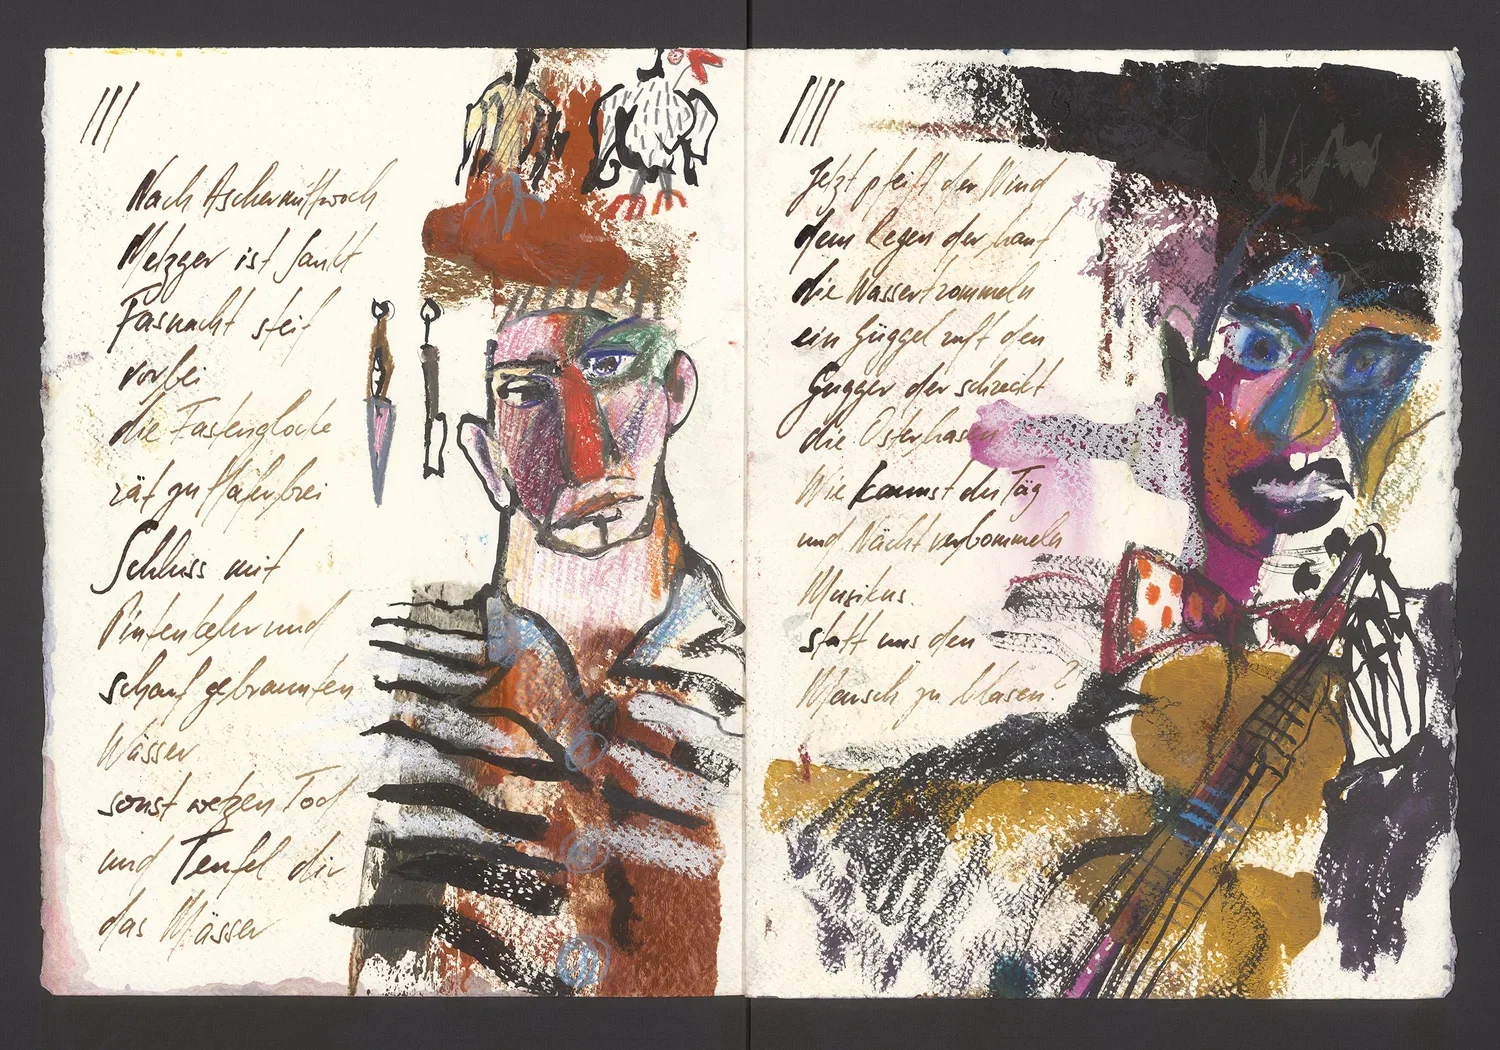 III
Nach Aschermittwoch
Metzger ist Sankt
Fasnacht steif
vorbei
die Fastenglocke
rät zu Haferbrei
Schluss mit
Pintenkehr und
scharf gebrannten
Wässer
sonst wetzen Tod
und Teufel dir
das Mässer
IIII
Jetzt pfeift der Wind
dem Regen der hauf
die Wassertrommeln
ein Güggel ruft den
Gugger der schreckt
die Osterhasen
Wie kannst du Täg
und Nächt verbommeln
Musikus
statt uns den
Marsch zu blasen?